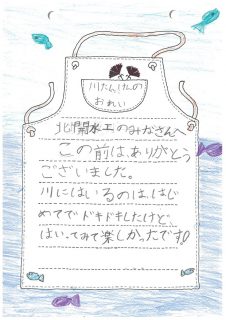 川たんけんの
おれい
北開水工のみなさんへ
この前は、ありがとう
ございました。
川にはいるのは、はじ
めてでドキドキしたけど、
はいってみて楽しかったです。